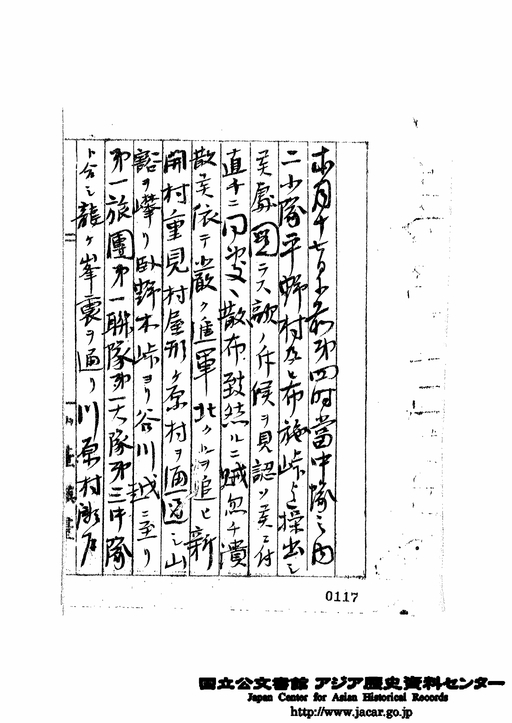 本月十七日午前第四時當中隊之内
二小隊平野村及ヒ布施峠ヘ操出シ
候處圖ラス敵ノ斥候ヲ見認メ候ニ付
直チニ同処ヘ散布致候ルニ賊忽チ潰
散候依テ嚴ク進軍北クルヲ追ヒ新
開村重見村屋形ヶ原村ヲ通過シ山
谿ヲ攀リ臥野木峠ヨリ谷川越ニ至リ
第一旅團第一聯隊第一大隊第三中隊
ト合シ龍ヶ峯裏ヲ通リ川原村
0117
国立公文書館 アジア歴史資料センター
Japan Center for Asian Historical Records
http://www.jacar.go.jp